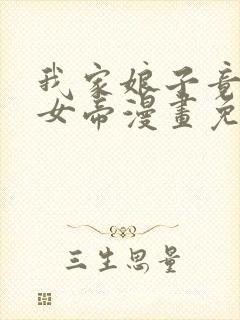 我家娘子竟
女帝漫畫免
三生思量